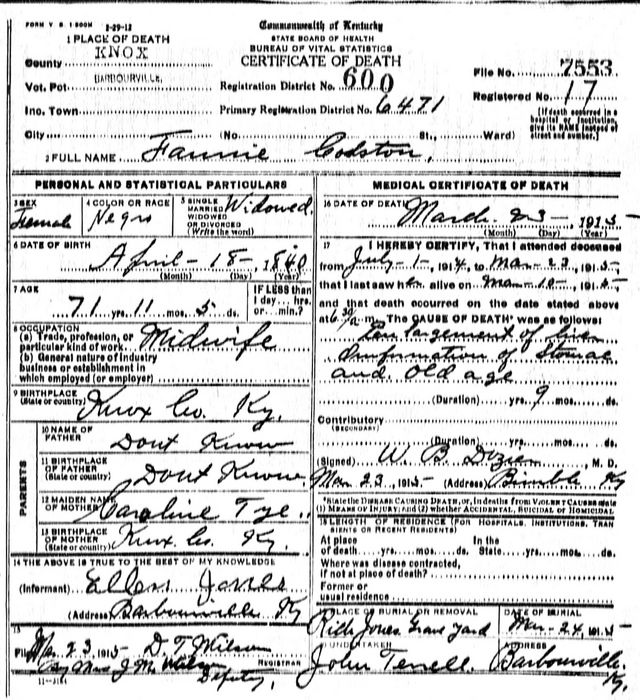 FORM V. S. 1 500M 8-29-12
Commonwealth of Kentucky
STATE BOARD OF HEALTH
BUREAU OF VITAL STATISTICS
CERTIFICATE OF DEATH
1 PLACE OF DEATH
County KNOX
Vot. Pct. BARBOURVILLE,
Inc. Town
City (No. St., Ward)
Registration District No. 600
Primary Registration District No. 6471
File No. 7553
Registered No. 17
[If death occurred in a
hospital or institution,
give its NAME instead of
street and number.]
2 FULL NAME Fannie Colston,
PERSONAL AND STATISTICAL PARTICULARS
3 SEX Female
4 COLOR OR RACE Negro
5 SINGLE
MARRIED
WIDOWED
OR DIVORCED
(Write the word)
Widowed.
6 DATE OF BIRTH
April - 18 - 1840
(Month) (Day) (Year)
7 AGE
71 yrs. 11 mos. 5 ds.
IF LESS than
1 day... hrs.
or...min.?
8 OCCUPATION
(a) Trade, profession, or
particular kind of work. Midwife
(b) General nature of industry
business or establishment in
which employed (or employer)
9 BIRTHPLACE
(State or country) Knox Co. Ky.
PARENTS
10 NAME OF
FATHER Dont Know
11 BIRTHPLACE
OF FATHER
(State or country) Dont Know
12 MAIDEN NAME
OF MOTHER Caroline Tye.
13 BIRTHPLACE
OF MOTHER
(State or country) Knox Co. Ky.
14 THE ABOVE IS TRUE TO THE BEST OF MY KNOWLEDGE
(Informant) Ellen Jones
(Address) Barbourville Ky
15
Filed Mar 23 1915- D. T. Wilson
REGISTRAR
By Mrs J. M. Wilson
Deputy,
11-3184
MEDICAL CERTIFICATE OF DEATH
16 DATE OF DEATH March - 23 - , 1915-
(Month) (Day) (Year)
17 I HEREBY CERTIFY, That I attended deceased
from July - 1 - , 1914, to Mar - 23, 1915-
that I last saw her alive on Mar - 10 - , 1915-
and that death occurred on the date stated above
at 6 30/a m. The CAUSE OF DEATH* was as follows:
Enlargement of liver
Imfamation of Stomac
and old age
(Duration) yrs. 9 mos. ds.
Contributory
(SECONDARY)
(Duration) yrs. mos. ds.
(Signed) W. B. Dozier, M. D.
Mar 23, 1915- (Address) Bimble Ky
*State the DISEASE CAUSING DEATH, or, in deaths from VIOLENT CAUSES state
(1) MEANS OF INJURY; and (2) whether ACCIDENTAL, SUICIDAL or HOMICIDAL
18 LENGTH OF RESIDENCE (FOR HOSPITALS, INSTITUTIONS, TRAN
SIENTS OR RECENT RESIDENTS)
At place In the
of death....yrs....mos....ds. State....yrs....mos....ds.
Where was disease contracted,
if not at place of death?
Former or
usual residence
19 PLACE OF BURIAL OR REMOVAL
Rich Jones Grave Yard
DATE OF BURIAL
Mar - 24, 1915-
20 UNDERTAKER
John Terrell
ADDRESS
Barbourville.
Ky.